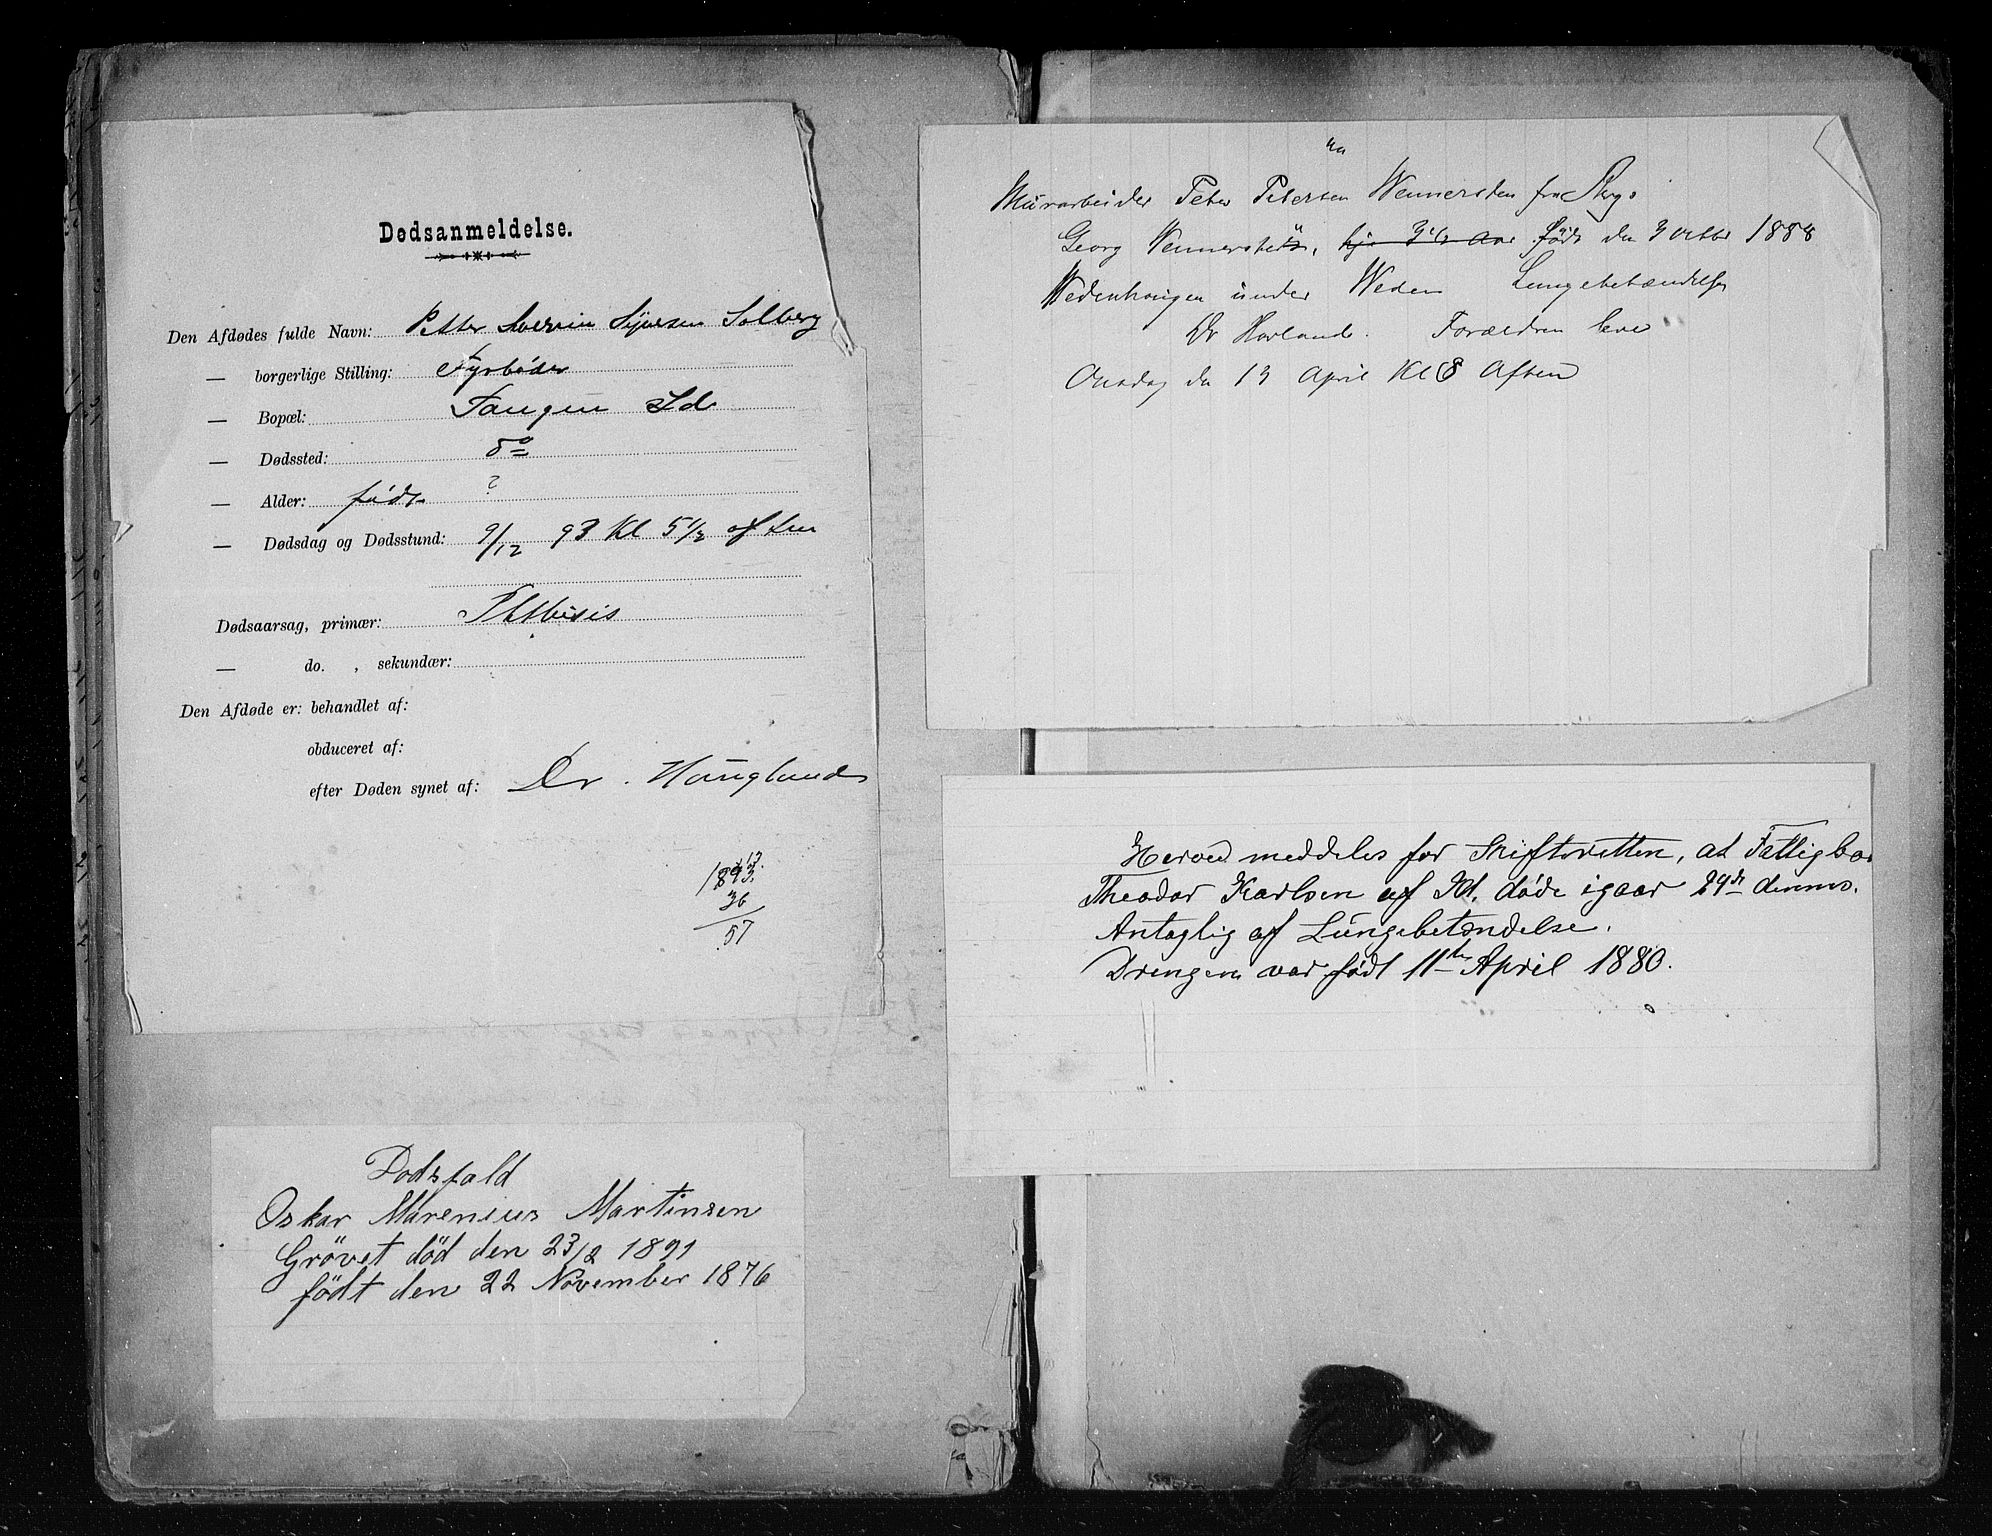 Dødsanmeldelse.
Den Afdødes fulde Navn: Petter Severin Syversen Solberg
— borgerlige Stilling: Fyrbøder
— Bopæl: Tangen Id
— Dødssted: do
— Alder: født ?
— Dødsdag og Dødsstund: 9/12 93 Kl 5 1/2 aften
Dødsaarsag, primær: Phthisis
— do. , sekundær:
Den Afdøde er: behandlet af:
obduceret af:
efter Døden synet af: Dr. Hauglund
1893.
36
57
Dødsfald
Oskar Marenius Martinsen
Grövet död den 23/2 1891
födt den 22 November 1876
Murarbeider Peter Petersen Wennersten fra Berg
Georg Wennersten, 3 1/2 Aar født den 3 Octbr 1888
Wedenhaugen under Weden Lungebetændelse
Dr Havland. Forældren leve
Onsdag den 13 April Kl 8 Aften
Herved meddeles for Skifteretten, at Fattigba
Theodor Karlsen af Id. døde igaar 29de dennes.
Antaglig af Lungebetændelse.
Drengen var født 11te April 1880.